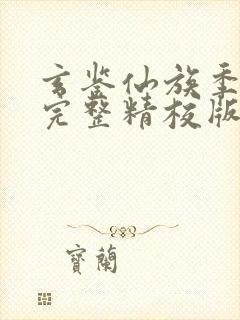 玄鉴仙族季
完整精校版
寶蘭